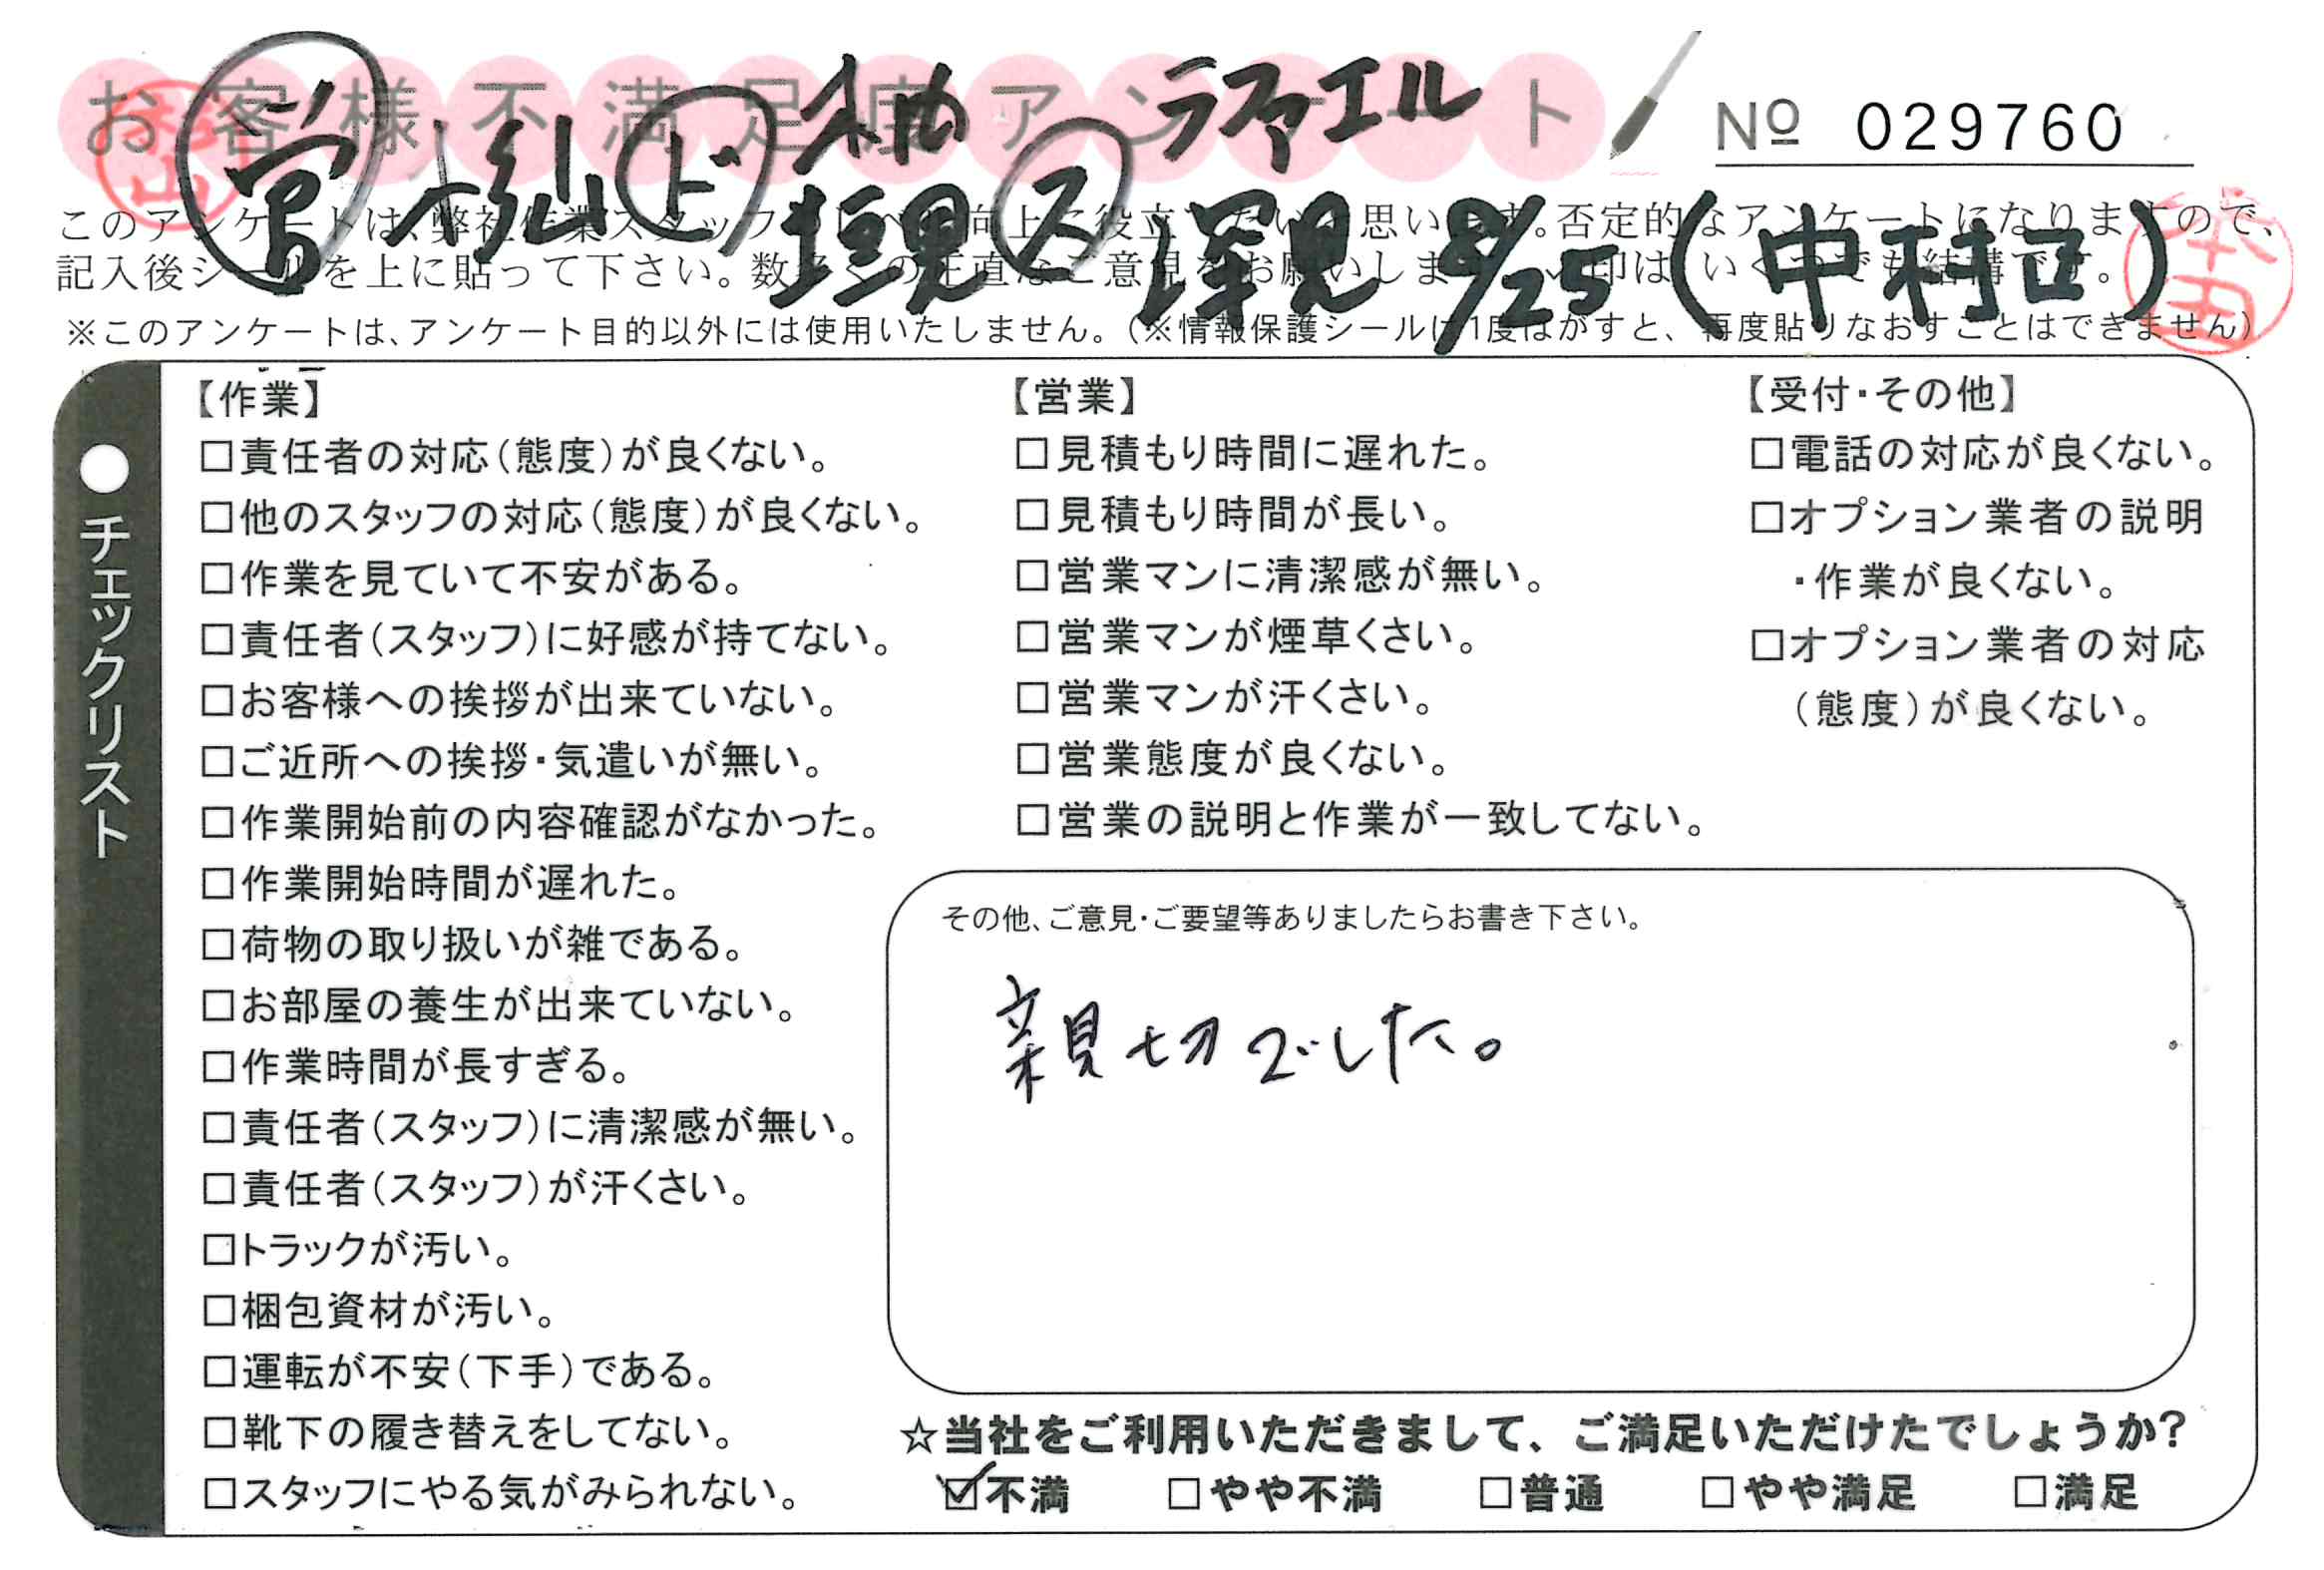 お客様不満足度アンケート
№ 029760
営 杉山 ド 柚 ス ラファエル
垣見 深見 8/25 (中村
このアンケートは、弊社作業スタッフ 向上に役立 思い す。否定的なアンケートになりますので、
記入後シールを上に貼って下さい。数多くの正直なご意見をお願いしま 印は いくつでも結構です。
※このアンケートは、アンケート目的以外には使用いたしません。(※情報保護シールは1度はがすと、再度貼りなおすことはできません)
●チェックリスト
【作業】
□責任者の対応(態度)が良くない。
□他のスタッフの対応(態度)が良くない。
□作業を見ていて不安がある。
□責任者(スタッフ)に好感が持てない。
□お客様への挨拶が出来ていない。
□ご近所への挨拶・気遣いが無い。
□作業開始前の内容確認がなかった。
□作業開始時間が遅れた。
□荷物の取り扱いが雑である。
□お部屋の養生が出来ていない。
□作業時間が長すぎる。
□責任者(スタッフ)に清潔感が無い。
□責任者(スタッフ)が汗くさい。
□トラックが汚い。
□梱包資材が汚い。
□運転が不安(下手)である。
□靴下の履き替えをしてない。
□スタッフにやる気がみられない。
【営業】
□見積もり時間に遅れた。
□見積もり時間が長い。
□営業マンに清潔感が無い。
□営業マンが煙草くさい。
□営業マンが汗くさい。
□営業態度が良くない。
□営業の説明と作業が一致してない。
【受付・その他】
□電話の対応が良くない。
□オプション業者の説明
・作業が良くない。
□オプション業者の対応
(態度)が良くない。
その他、ご意見・ご要望等ありましたらお書き下さい。
親切でした。
☆当社をご利用いただきまして、ご満足いただけたでしょうか?
☑不満 □やや不満 □普通 □やや満足 □満足